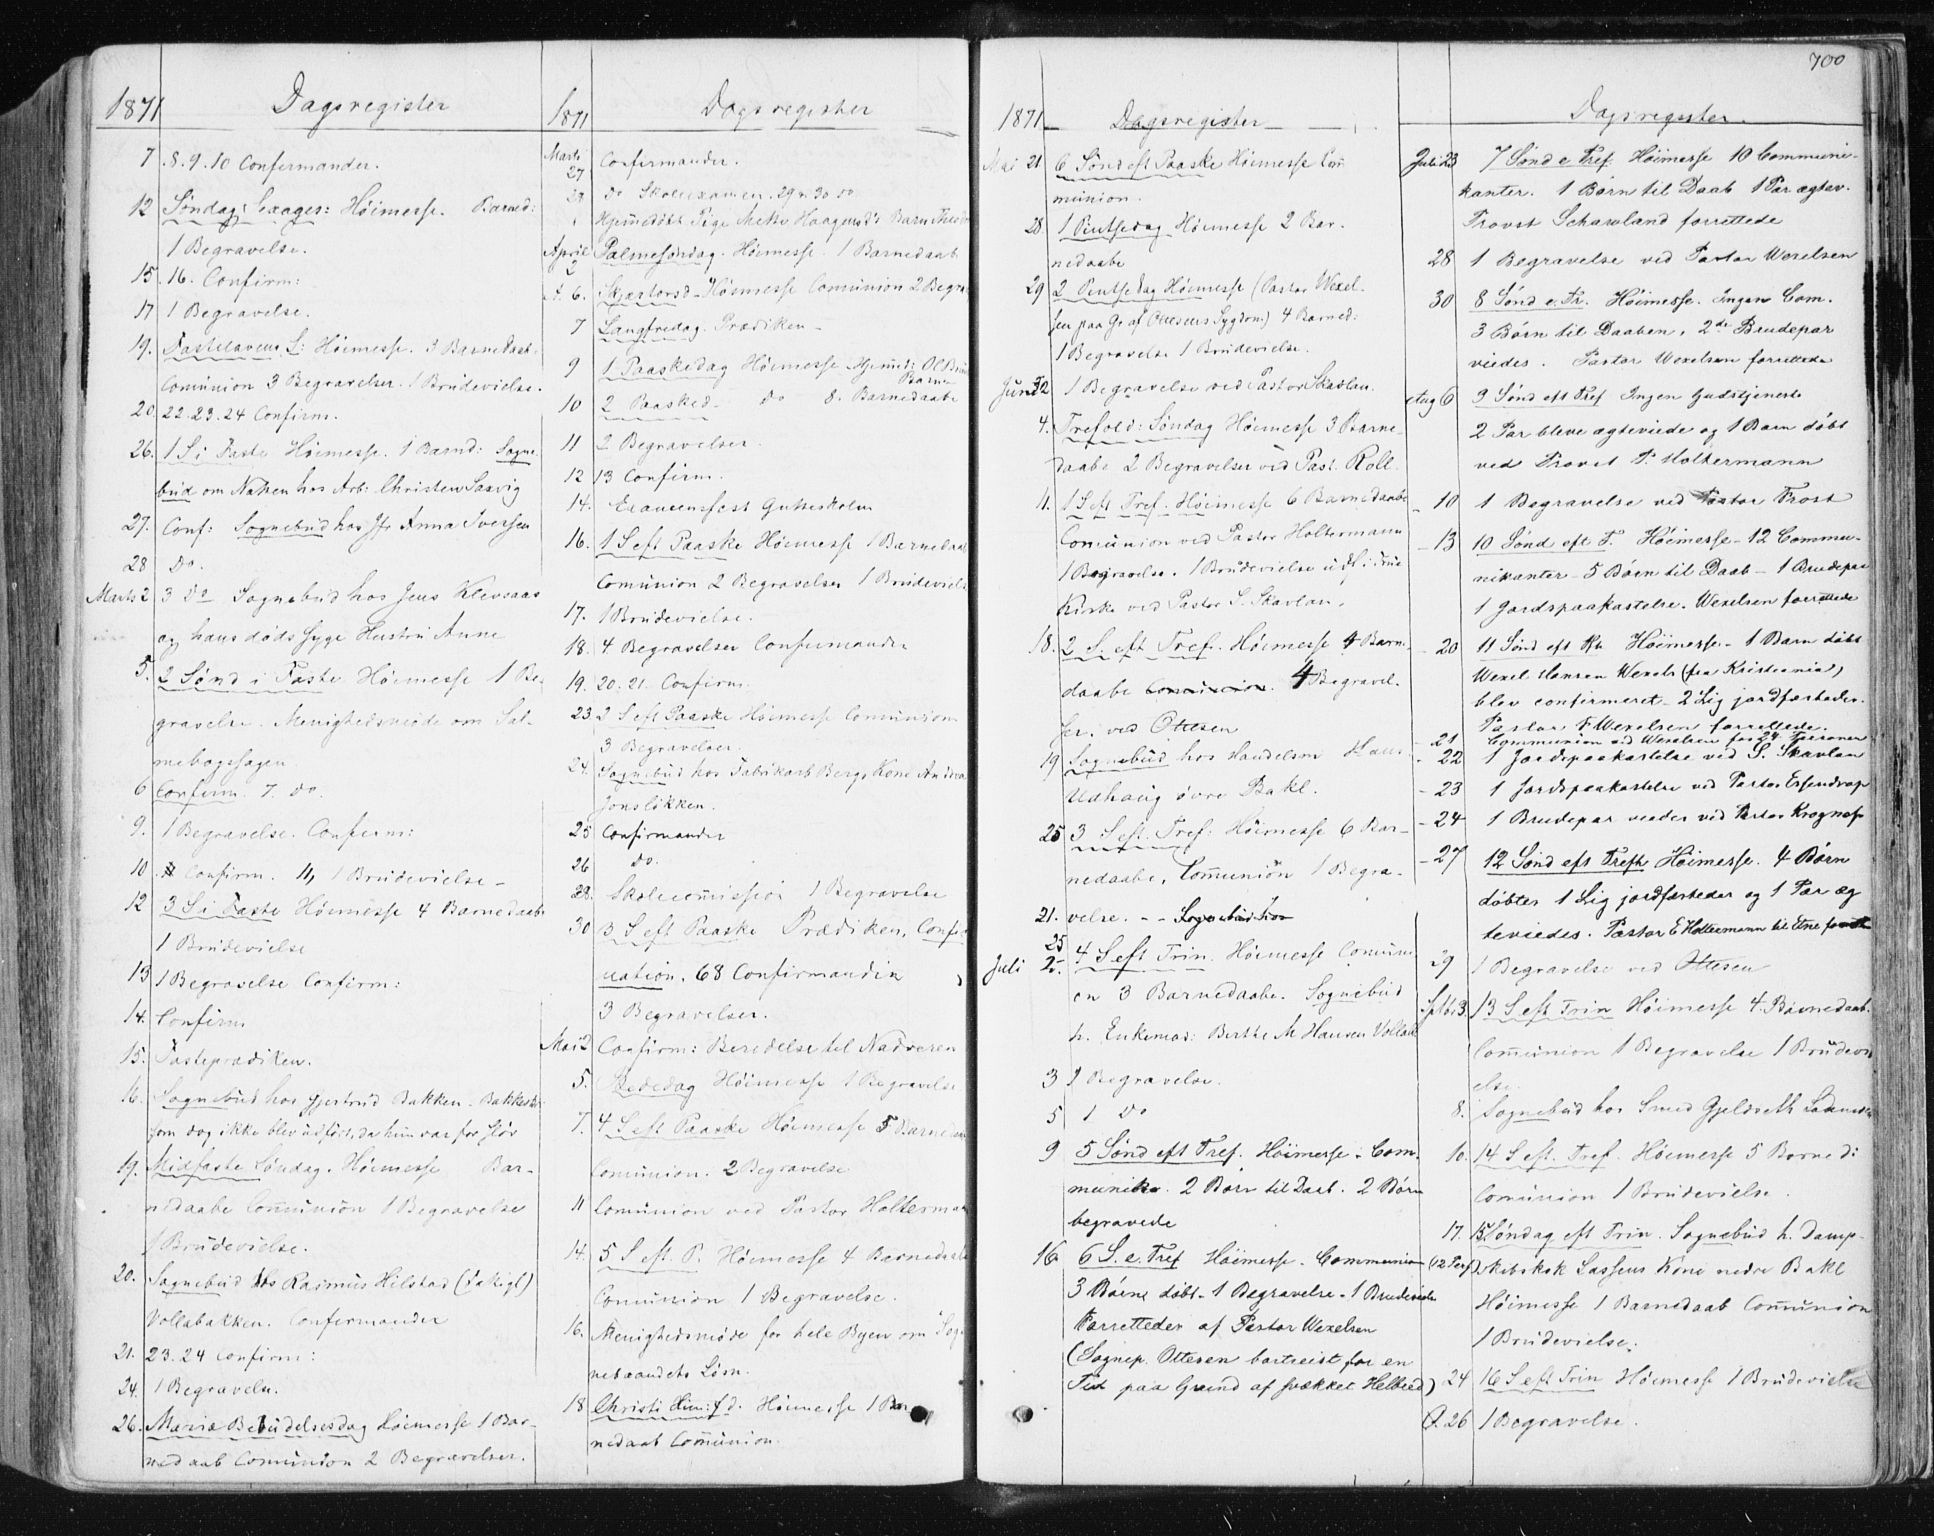 700
1871 Dagsregister
7 .8.9.10 Confirmander.
12 Søndag Sexages: Höimesse. Barned:
1 Begravelse.
15. 16. Confirm:
17 1 Begravelse.
19. Fastelavens S: Höimesse. 3 Barnedaab.
Comunion 3 Begravelser. 1 Brudevielse.
20. 22.23.24 Confirm.
26. 1 S i Faste Höimesse. 1 Barnd: Sogne
bud om Natten hos Arb: Christen Saxvig
27. Conf: Sognebud hos Jfr Anna Iversen
28 Do.
Marts 2 3 Do Sognebud hos Jens Klevsaas
og hans dødssyge Hustru Anne
5. 2 Sønd i Faste Höimesse 1 Be-
gravelse. Menighedsmøde om Sal-
mebogssagen
6 Confirm. 7. do.
9. 1 Begravelse. Confirm:
10. Confirm. 11, 1 Brudevielse -
12 3 S i Faste Höimesse 4 Barnedaab
1 Brudevielse
13 1 Begravelse Confirm:
14. Confirm
15. Fasteprædiken.
16. Sognebud hos Gjertrud Bakken. Bakke
som dog ikke blev udført, da hun var for sløv
19. Midfaste Söndag. Höimesse Bar-
nedaabe Comunion 1 Begravelse
1 Brudevielse.
20. Sognebud hos Rasmus Hilstad (Fatigl)
Vollabakken. Confirmander
21. 23.24 Confirm:
24. 1 Begravelse.
26. Mariæ Bebudelsesdag Höimesse 1 Bar-
nedaab Comunion 2 Begravelser.
1871 Dagsregister
Marts 27 Confirmander.
29 do Skoleexamen. 29 n 30 do
Hjemmedöbt Pige Mette Haagens's Barn
April 2 Palmesøndag. Höimesse. 1 Barnedaab
A. 6. Skjærtorsd- Höimesse Comunion 2 Begra
7 Langfredag. Prædiken -
9 1 Paaskedag Höimesse
Barn
10 2 Paasked - do 8. Barnedaabe
11 2 Begravelser.
12 13 Confirm.
14. Examensfest Gutteskolen
16. 1 S eft Paaske Höimesse 1 Barnedaab
Comunion 2 Begravelser 1 Brudeviels
17. 1 Brudevielse.
18. 4 Begravelser Confirmander
19. 20. 21. Confirm.
23 2 S eft Paaske Höimesse Comunion
3 Begravelser.
24. Sognebud hos Fabrikarb Bergs Kone
Jonsløkken.
25 Confirmander
26 do.
28. Skolecomission 1 Begravelse
30 3 S eft Paaske Prædiken, Confir
mation. 68 Confirmander
3 Begravelser.
Mai 2 Confirm: Beredelse til Nadveren
5. Bededag Höimesse 1 Begravelse
7. 4 S eft Paaske Höimesse 5 Barned
Comunion. 2 Begravelse
11 Comunion ved Pastor Holtermann
14. 5 S eft. P. Höimesse 4 Barnedaabe
Comunion 1 Begravelse.
16. Menighedsmöde for hele Byen om Sog
nets Lönn.
18 Christi Him: f d. Höimesse 1 Bar
nedaab Comunion.
1871 Dagsregister
Mai 21 6 Sønd eft Paaske Höimesse Com
munion.
28. 1 Pintsedag Höimesse 2 Bar.
nedaabe
29 2 Pintsedag Höimesse (Pastor Wexel-
sen paa Gr af Ottesens Sygdom) 4 Barned:
1 Begravelse 1 Brudevielse.
Juni 2 1 Begravelse ved Pastor Skavlan.
4. Trefold: Søndag Höimesse 3 Barne-
daabe 2 Begravelser ved Past. Roll
11. 1 S eft Tref. Höimesse 6 Barnedaabe
Comunion ved Pastor Holtermann
1 Begravelse. 1 Brudevielse udf. i Frue
Kirke ved Pastor S. Skavlan.
18. 2 S. eft Tref. Höimesse 4 Barn.
daabe Comunion. 4 Begravel-
ser. ved Ottesen
19 Sognebud hos Handelsm Hans
Udhaug øvre Bakl.
25 3 S eft. Tref: Höimesse 6 Bar-
nedaabe, Communion 1 Begra-
21. velse. - - Sognebud hos
Juli 2. 4 S eft Trin. Höimesse Comuni
on 3 Barnedaabe. Sognebud
h. Enkemad: Berthe M Hansen Vollab
3 1 Begravelse.
5 1 do
9 5 Sønd eft Tref. Höimesse. Com-
munion. 2 Börn til Daab. 2 Börn
begravede
16 6 S. e. Tref Höimesse. Communion (12 Pers)
3 Börn døbt - 1 Begravelse - 1 Brudevielse
Forretteder af Pastor Wexelsen
(Sognep. Ottesen bortreist for en
Tid paa Grund af svækket Helbred)
Dagsregister.
Juli 23 7 Sønd e Tref. Höimesse 10 Communi-
kanter. 1 Børn til Daab 1 Par ægtev.
Provst Schawland forrettede
28 1 Begravelse ved Pastor Wexelsen
30 8 Sønd e. Tr. Höimesse. Ingen Com.
3 Børn til Daaben, 2de Brudepar
viedes. Pastor Wexelsen forrettede
Aug 6 9 Sønd eft Tref Ingen Gudstjeneste
2 Par bleve ægteviede og 1 Barn døbt
ved Provst P. Holtermann
- 10 1 Begravelse ved Pastor Frost
- 13 10 Sønd eft T. Höimesse - 12 Commu-
nikanter - 5 Børn til Daab - 1 Brudepar
1 Jordspaakastelse. Wexelsen forrettede
- 20 11 Sønd eft Höimesse - 1 Barn døbt
Wexel Hansen Wexels (fra Kristiania)
blev confirmeret - 2 Lig jordfæstedes.
Pastor F Wexelsen forrettede.
- 21 Communion ved Wexelsen for 24 Personer
- 22 1 Jordspaakastelse ved S. Skavlan
- 23 1 Jordspaakastelse ved Pastor
- 24 1 Brudepar viedes ved Pastor Krogness
- 27 12 Sønd eft Trefh Höimesse. 4 Børn
døbtes 1 Lig jordfæstedes og 1 Par æg
teviedes. Pastor E Holtermann til Etne forrett
29 1 Begravelse ved Ottesen
Sptbr 3. 13 S eft Trin Höimesse 4 Barnedaab.
Comunion 1 Begravelse 1 Brudevi
else.
8. Sognebud hos Smed Gjeldseth Lademoen
10. 14 S eft. Tref. Höimesse 5 Barned:
Comunion 1 Brudevielse.
17. 15 Söndag eft Trin. Sognebud h. Damp-
skibskok Lassens Kone nedre Bakl
Höimesse 1 Barnedaab Comunion
1 Brudevielse.
24 16 S eft Trin Höimesse 1 Brudevielse
26 1 Begravelse.